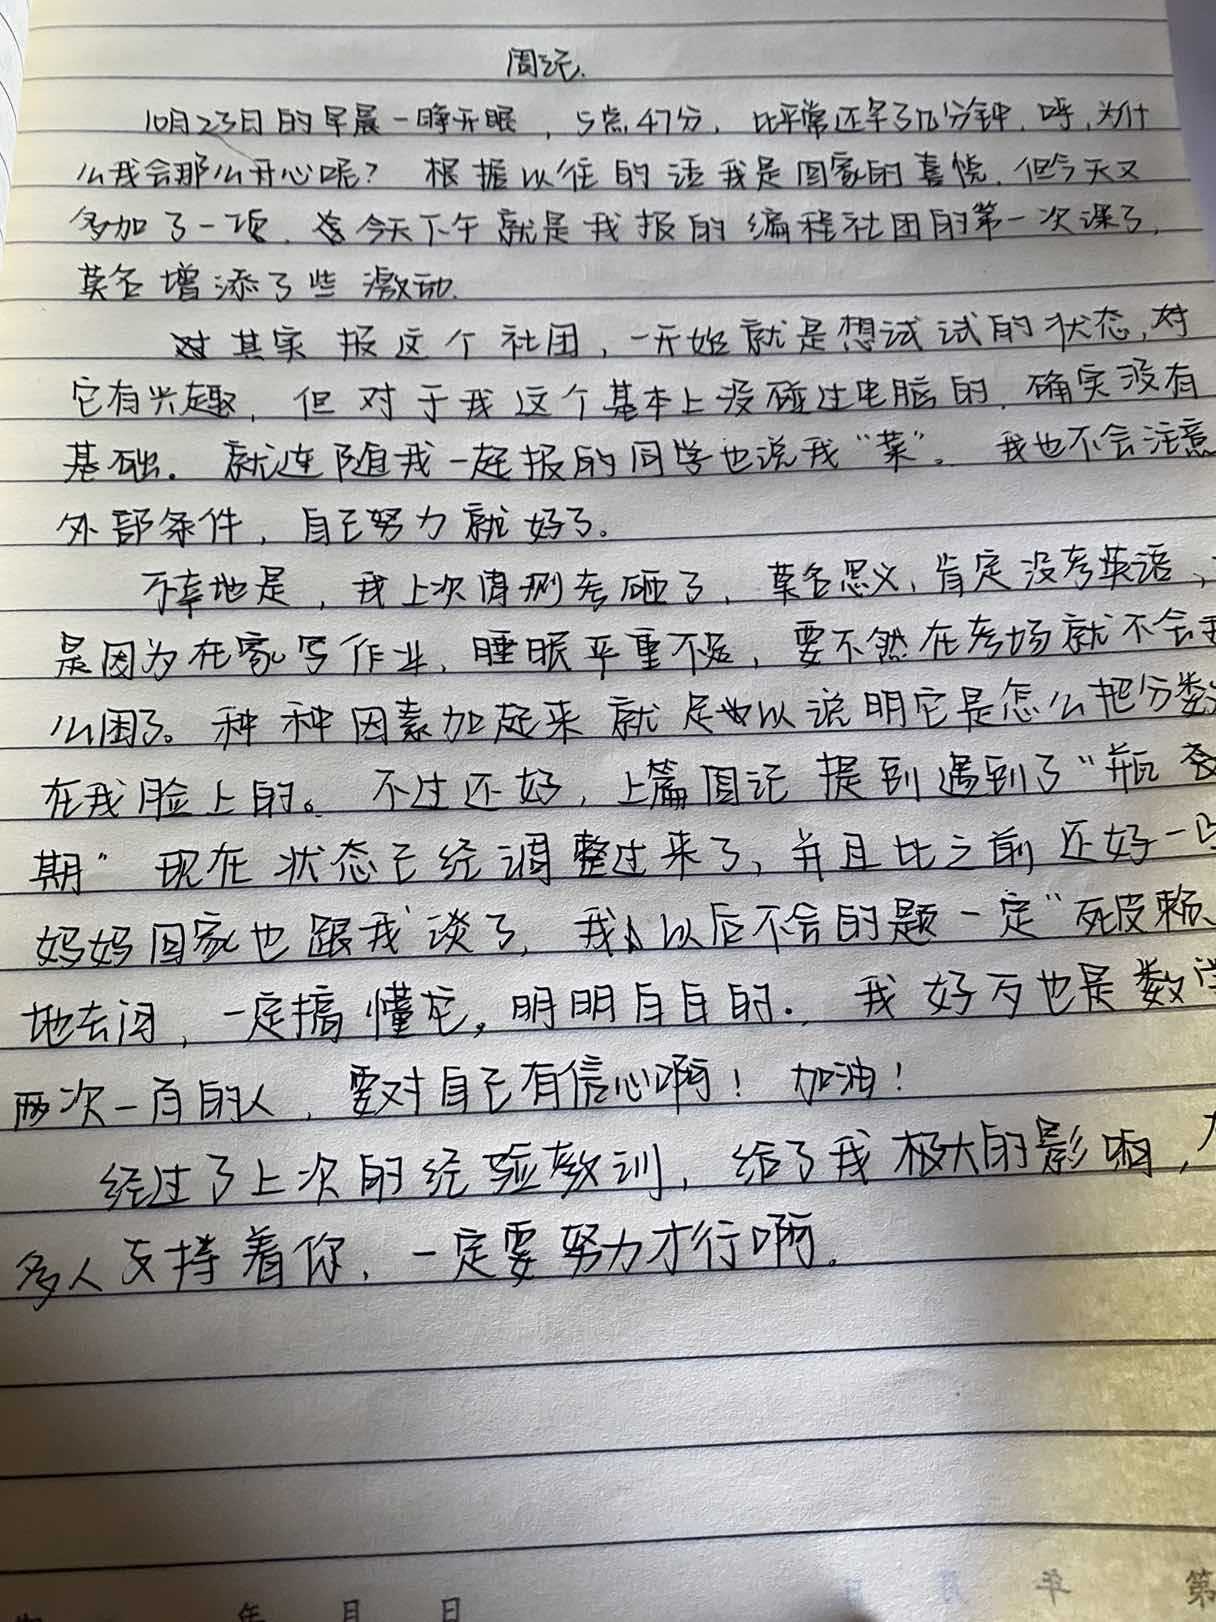 周记.
10月23日的早晨一睁开眼，5点47分，比平常还早了几分钟，呼，为什
么我会那么开心呢？根据以往的话我是回家的喜悦，但今天又
多加了一项，今天下午就是我报的编程社团的第一次课了，
莫名增添了些激动.
其实报这个社团，一开始就是想试试的状态，对
它有兴趣，但对于我这个基本上没碰过电脑的，确实没有
基础。就连随我一起报的同学也说我“菜”。我也不会注意
外部条件，自己努力就好了。
不幸地是，我上次周测考砸了，莫名思义，肯定没考英语，
是因为在家写作业，睡眠严重不足，要不然在考场就不会
么困了。种种因素加起来就足以说明它是怎么把分数
在我脸上的。不过还好，上篇周记提到遇到了“瓶
期”现在状态已经调整过来了，并且比之前还好一
妈妈回家也跟我谈了，我以后不会的题一定“死皮赖
地去问，一定搞懂它，明明白白的.，我好歹也是数学
两次一百的人，要对自己有信心啊！加油！
经过了上次的经验教训，给了我极大的影响，
多人支持着你，一定要努力才行啊。
年 月 日
年 月
第